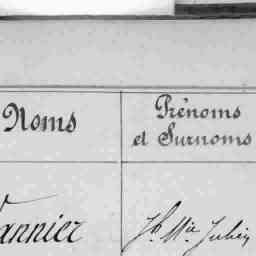 Noms
Prénoms
et Surnoms
Vannier
Jh Mie Julien